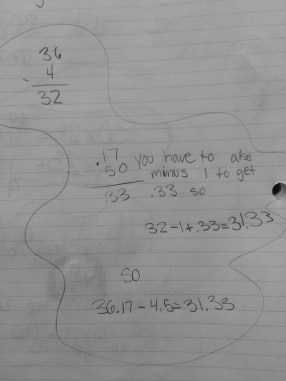 36
- 4
32
.17 you have to also
.50 minus 1 to get
.33 .33 so
32-1+.33=31.33
so
36.17-4.5=31.33